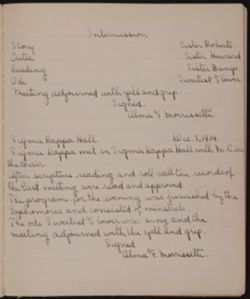 Intermission
Story Sister Roberts
Critic Sister Howard
Reading Sister Bangs
Ode Sweetest Flower
Meeting adjourned with yell and grip.
Signed.
Alma F. Morrissette.
Sigma Kappa Hall Dec. 1,
Sigma Kappa met in Sigma Kappa Hall with M. in
the chair.
After scripture reading and roll-call the records of
the last meeting were read and approved.
The program for the evening was furnished by the
Sophomores and consisted of minstrels.
The ode Sweetest Flower was sung and the
meeting adjourned with the yell and grip.
Signed
Alma F. Morrissette.